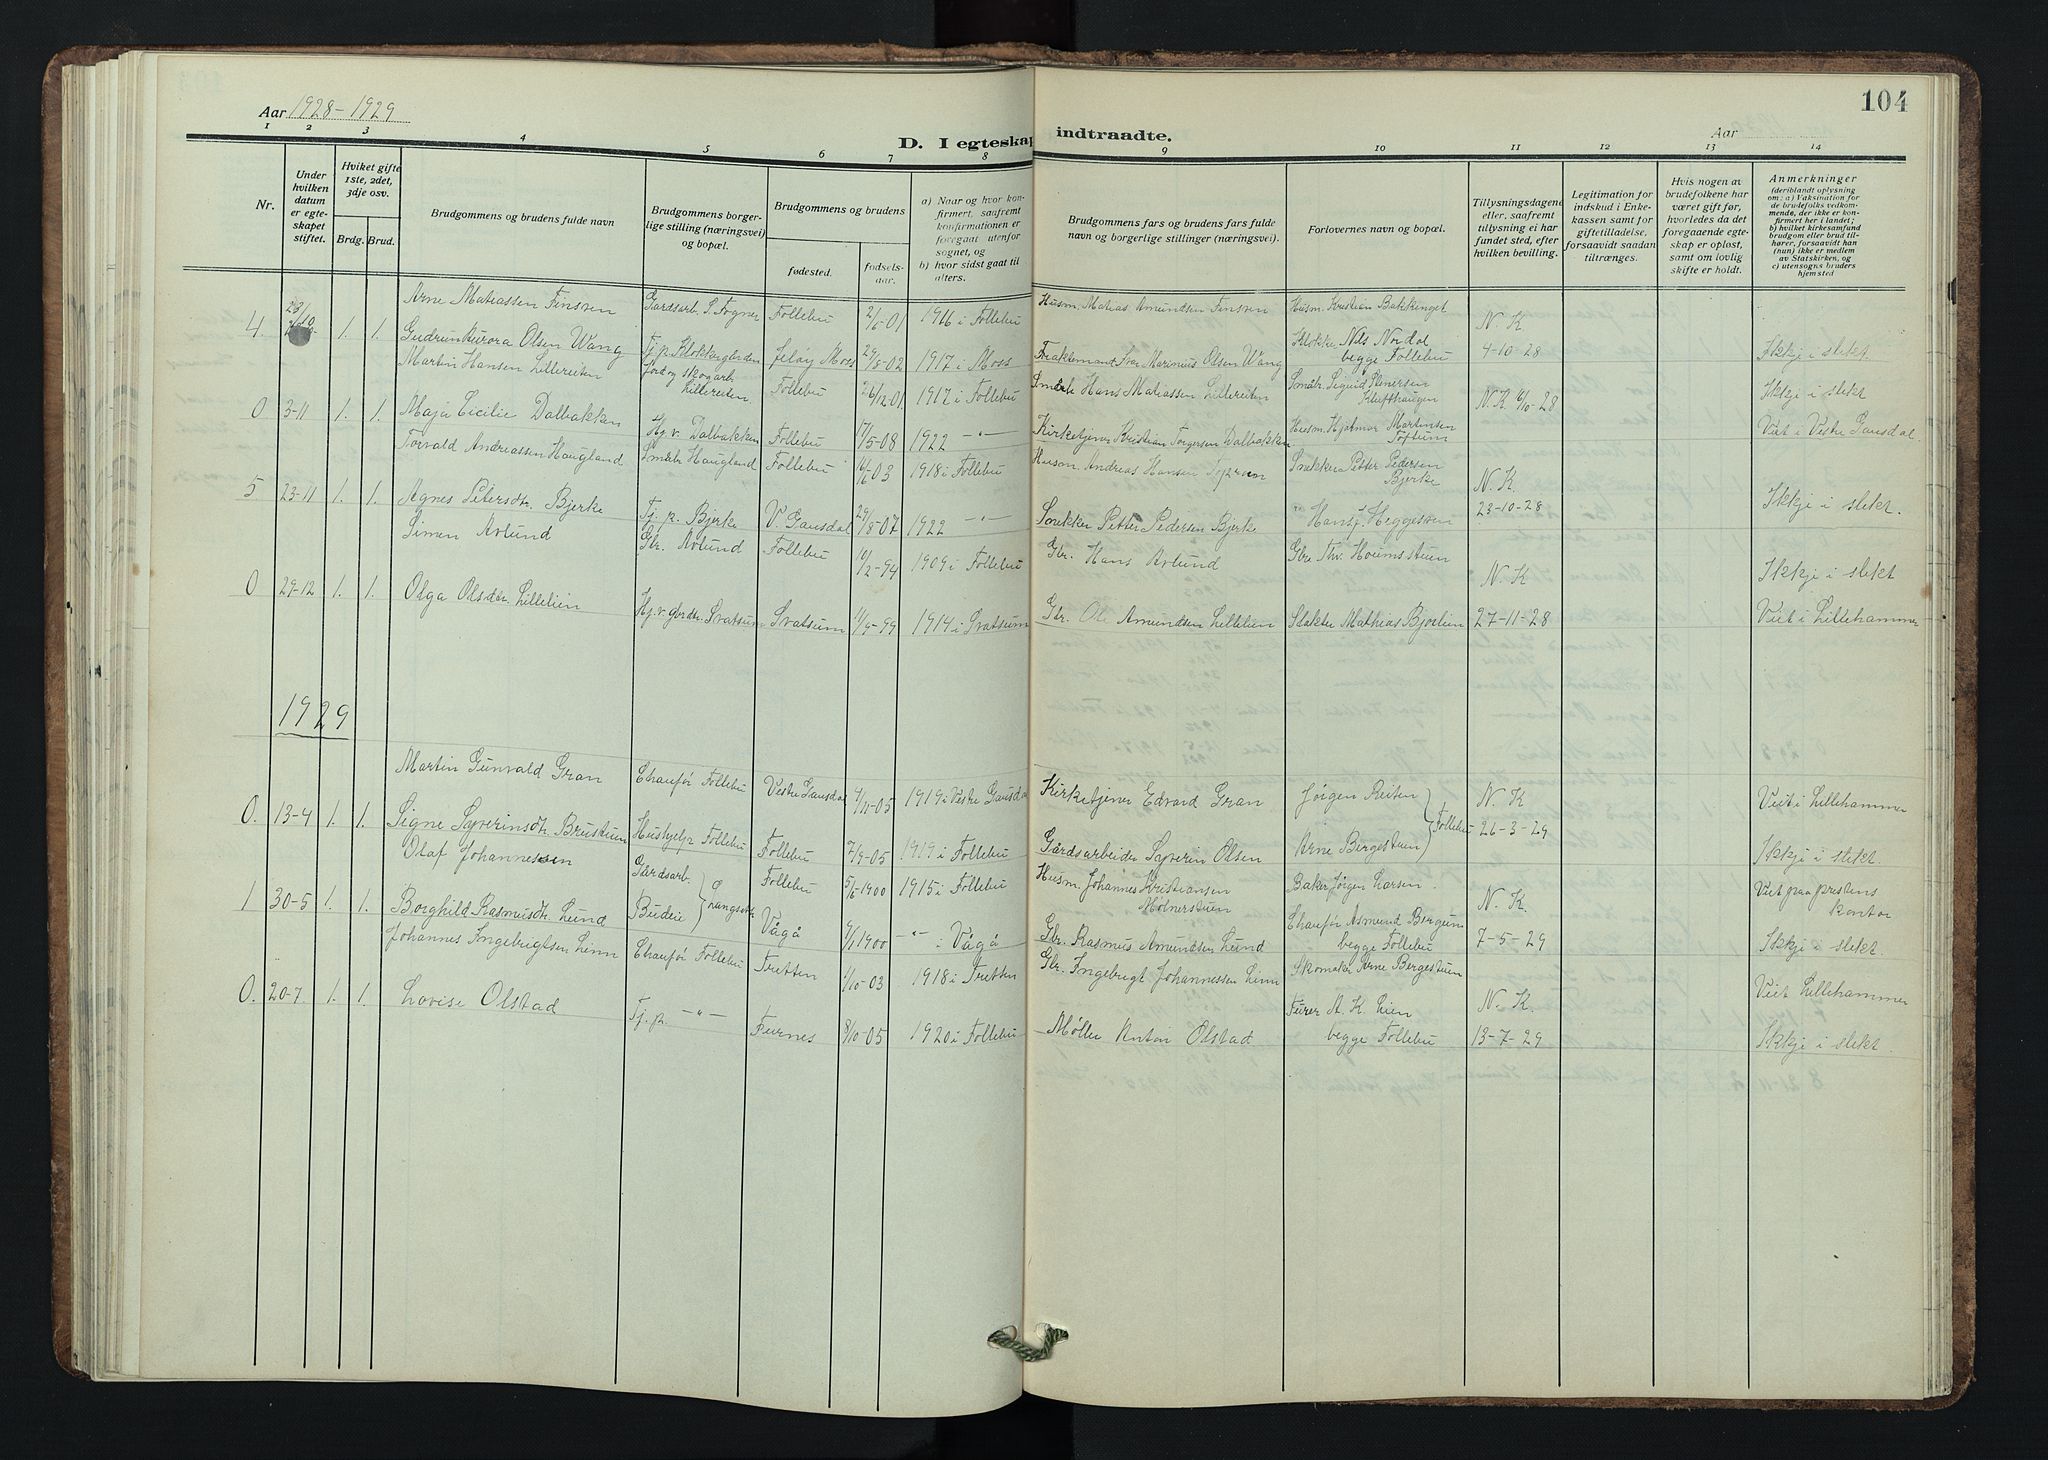 Aar 1928-1929
104
D. I egteskap indtraadte.
Aar
1 2 3 4 5 6 7 8 9 10 11 12 13 14
Nr.
Under hvilken datum er egteskapet stiftet.
Hviket gifte 1ste, 2det, 3dje osv.
Brdg. Brud.
Brudgommens og brudens fulde navn
Brudgommens borgerlige stilling (næringsvei) og bopæl.
Brudgommens og brudens
fødested.
fødselsaar.
a) Naar og hvor konfirmert, saafremt konfirmationen er foregaat utenfor sognet, og
b) hvor sidst gaat til alters.
Brudgommens fars og brudens fars fulde navn og borgerlige stillinger (næringsvei).
Forlovernes navn og bopæl.
Tillysningsdagene eller, saafremt tillysning ei har fundet sted, efter hvilken bevilling.
Legitimation for indskud i Enkekassen samt for giftetilladelse, forsaavidt saadan tiltrænges.
Hvis nogen av brudefolkene har været gift før, hvorledes da det foregaaende egteskap er opløst, samt om lovlig skifte er holdt.
Anmerkninger
(deriblandt oplysning om: a) Vaksination for de brudefolks vedkommende, der ikke er konfirmert her i landet; b) hvilket kirkesamfund brudgom eller brud tilhører, forsaavidt han (hun) ikke er medlem av Statskirken, og c) utensogns bruders hjemsted
Arne Matiassen Finsven Gardsarb. P. Fogner Follebu 2/6-01 1916 i Follebu Husm. Matias Amundsen Finsven Husm. Kristian Bakkenget
4 23/10 1. 1. Gudrun Aurora Olsen Wang Tj. p. Klokkegården Jeløy Moss 29/8-02 1917 i Moss Marinius Olsen Wang Klokke Nils Nordal begge Follebu N. K 4-10-28 Ikkje i slekt.
Martin Hansen Lillereiten Jord og skogarb. Lillereiten Follebu 26/12-01 1917 i Follebu Småbr Hans Matiassen Lillereiten Småbr. Sigurd Stenersen Klufthaugen Ikkje i slekt
0 3-11 1. 1. Maja Cecilie Dalbakken Hj. v. Dalbakken Follebu 17/5-08 1922 -"- Kirketjener Kristian Torgersen Dalbakken Husm. Hjalmar Martinsen Toftum N. K 6/10-28 Viet i Vestre Gausdal.
Torvald Andreassen Haugland Småbr Haugland Follebu 16/6-03 1918 i Follebu Husm. Andreas Hansen Snekker Petter Pedersen Bjerke
5 23-11 1. 1. Agnes Petersdtr. Bjerke Tj. p. Bjerke V. Gausdal 29/8-07 1922 -"- Snekker Petter Pedersen Bjerke Hans J. Heggesven N. K. 23-10-28 Ikkje i slekt.
Simen Avlund Gbr. Avlund Follebu 10/2-94 1909 i Follebu Gbr. Hans Avlund Gbr Thv. Houmsstuen Ikkje i slekt
0 29-12 1. 1. Olga Olsdtr. Lillelien Hj. v. Svatsum Svatsum 11/9-99 1914 i Svatsum Gbr. Ole Amundsen Lillelien Slakter Mathias Bjørlien N. K 27-11-28 Viet i Lillehammer
1929
Martin Gunvald Gran Chaufør Follebu Vestre Gausdal 4/11-05 1919 i Vestre Gausdal Kirketjener Edvard Gran Jørgen Reiten N. K Viet i Lillehammer
0. 13-4 1. 1. Signe Syverinsdtr. Brustuen Hushjelp Follebu Follebu 7/9-05 1919 i Follebu Gårdsarbeider Syverin Olsen Arne Bergestuen Follebu 26-3-29 Ikkje i slekt.
Olaf Johannessen Gårdsarb. Follebu 5/6-1900 1915 i Follebu Husm. Johannes Kristiansen Mølnerstuen Baker Jørgen Larsen. Viet paa prestens kontor
1 30-5 1. 1. Borghild Rasmusdtr. Lund Budeie Vågå 9/1-1900 -"- i Vågå Gbr. Rasmus Amundsen Lund Chaufør Asmund Bergum begge Follebu N. K. 7-5-29 Ikkje i slekt.
Johannes Ingebrigtsen Linn Chaufør Follebu Tretten 1/10-03 1918 i Tretten Gbr. Ingebrigt Johannessen Linn Skomaker Arne Bergestuen Viet Lillehammer
0. 20-7 1. 1. Lovise Olstad Tj. p. -"- Furnes 8/10-05 1920 i Follebu Møller Anton Olstad Furer A. K. Lien begge Follebu N. K. 13-7-29 Ikkje i slekt.